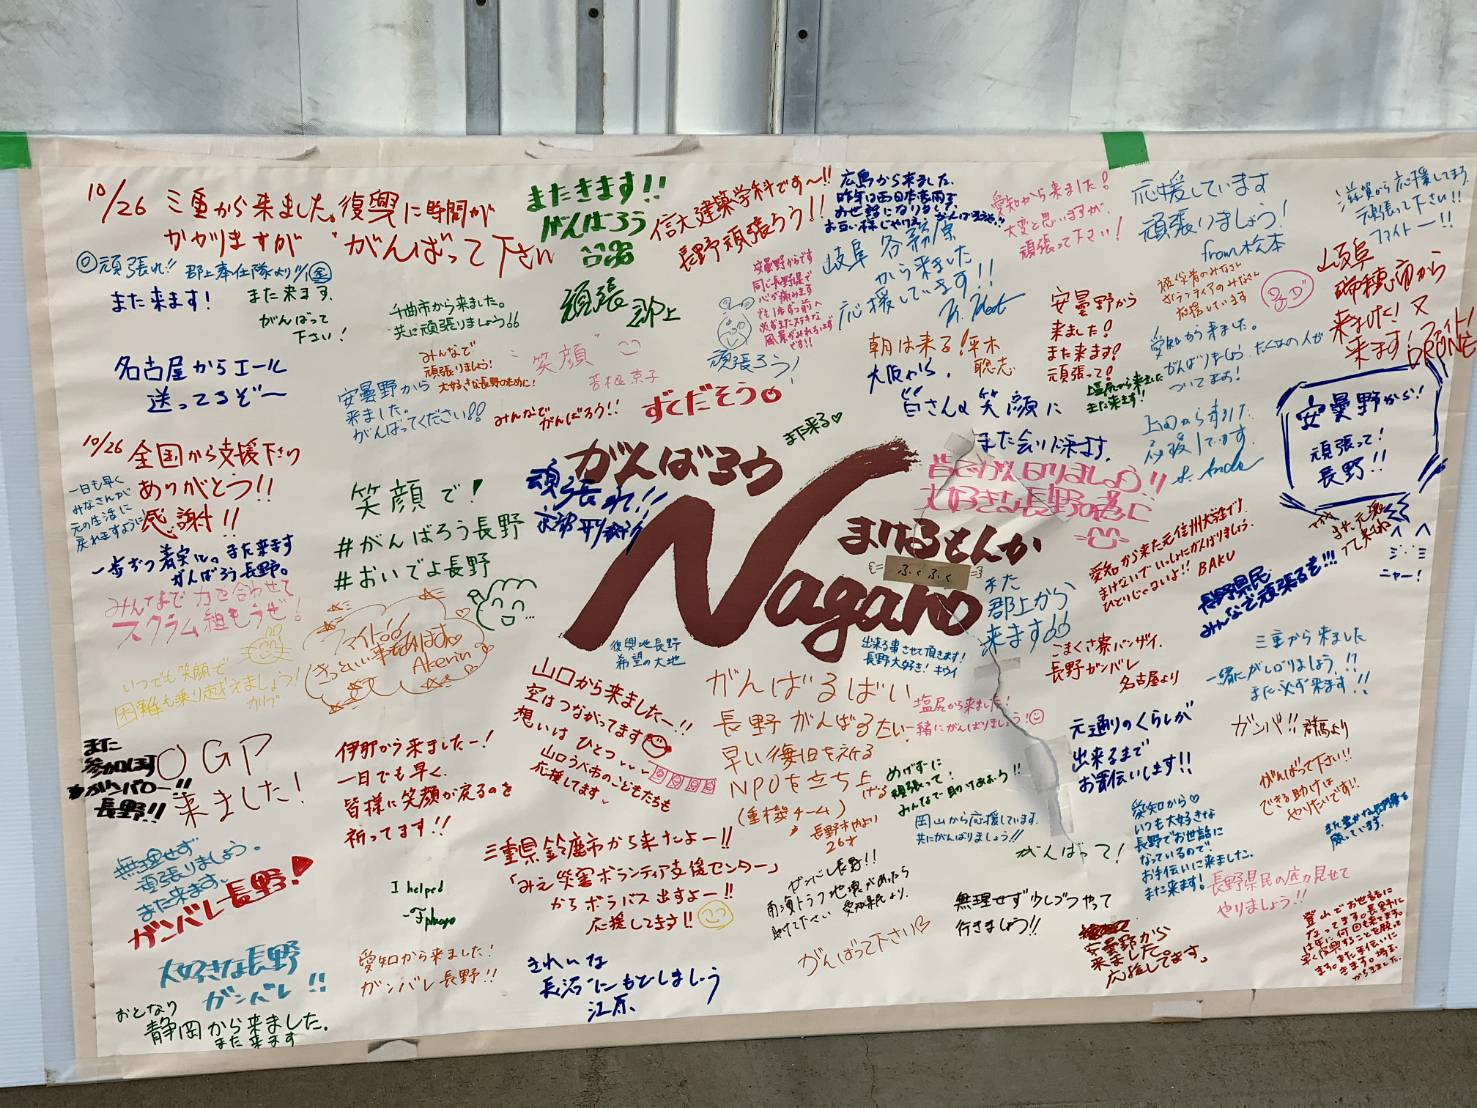 10/26 三重から来ました。復興に時間が
かかりますが がんばって下さい
頑張れ!! 郡上奉仕隊より!!
また来ます!
また来ます。
がんばって
下さい!
名古屋からエール
送ってるぞ〜
10/26
全国から支援下さり
ありがとう!!
感謝!!
一日も早く
みなさんが
元の生活に
戻れますように
一歩ずつ着実に。また来ます
がんばろう長野。
みんなで力を合わせて
スクラム組もうぜ!
いつでも笑顔で
困難も乗り越えましょう!
また
参加します
がんバロー!!
長野!!
OGP
来ました!
無理せず
頑張りましょう。
また来ます。
ガンバレ長野!
大好きな長野
ガンバレ!!
おとなり
静岡から来ました。
また来ます
千曲市から来ました。
共に頑張りましょう
みんなで
頑張りましょう!
大好きな長野のために!
安曇野から
来ました。
がんばってください!!
笑顔で!
#がんばろう長野
#おいでよ長野
ファイト
きっといい事あります
伊那から来ましたー!
一日でも早く、
皆様に笑顔が戻るのを
祈ってます!!
I helped
愛知から来ました!
ガンバレ長野!!
またきます!!
がんばろう
頑張
郡上
"笑顔"
みんなでがんばろう!!
ずくだそう
信大建築学科です〜!!
長野頑張ろう!!
安曇野からです
同じ長野県で
心が痛みます
でも1歩ずつ前へ
頑張ろう!
また来る♡
がんばろう
Nagano
まけるもんか
ふくふく
頑張れ!!
復興地長野
希望の大地
山口から来ましたー!!
空はつながってます
想いは ひとつ・・・
山口うべ市のこどもたちも
応援してます
三重県鈴鹿市から来たよー!!
「みえ災害ボランティア支援センター」
からボラバス出すよー!!
応援してます!!
きれいな
長沼にもどしましょう
江原
広島から来ました。
昨年は西日本豪雨で
お世話になりました。
岐阜 各務原
から来ました
応援しています!!
朝は来る!
平木
聡志
大阪から、
皆さんの笑顔に
また会いに来ます。
皆でがんばりましょう!!
大好きな長野の為に
また
郡上から
来ます
出来る事させて頂きます!
長野大好き! キウイ
がんばるばい
長野 がんばるたい
早い復旧を祈る
NPOを立ち上げる
(重機チーム)
長野市やよい
26才
めげずに
頑張って!
みんなで助けあおう!!
塩尻から来ました!
一緒にがんばりましょう!
岡山から応援しています。
共にがんばりましょう!!
がんばって!
ガンバレ長野!!
南海トラフ地震があったら
助けてください 愛知県民より。
がんばって下さい
無理せず少しづつやって
行きましょう!!
愛知から来ました!
大変と思いますが、
頑張って下さい!
安曇野から
来ました!
また来ます!
頑張って!
塩尻から来ました
また来ます!
応援しています
頑張りましょう!
from 松本
被災者のみなさん
ボランティアのみなさん
応援しています
愛知から来ました。
がんばりましょう。たくさんの人が
ついてます!
上田から来ました
応援しています。
滋賀から応援してます
頑張って下さい!!
ファイトー!!
岐阜
瑞穂市から
来ました! 又
来ます! ファイト!
DRONE
安曇野から!
頑張って!
長野!!
また元気
ニャー!
愛知から来た元信州大生です。
まけないでいっしょにがんばりましょう。
ひとりじゃないよ!! BAKU
長野県民
みんなで頑張るぞ!!!
こまくさ寮バンザイ。
長野ガンバレ
名古屋より
三重から来ました
一緒にがんばりましょう!!
また必ず来ます!!
元通りのくらしが
出来るまで
お手伝いします!!
ガンバ!! 群馬より
がんばって下さい!!
できる助けは
やりたいです!
愛知から♡
いつも大好きな
長野でお世話に
なっているので、
お手伝いに来ました。
また来ます!
長野県民の底力見せて
やりましょう!!
安曇野から
来ました。
応援してます。
登山でお世話に
なってます。長野に
は年に何回も来てます。
早く復興することを願って
ます。また手伝いに
きます。埼玉
からきました。